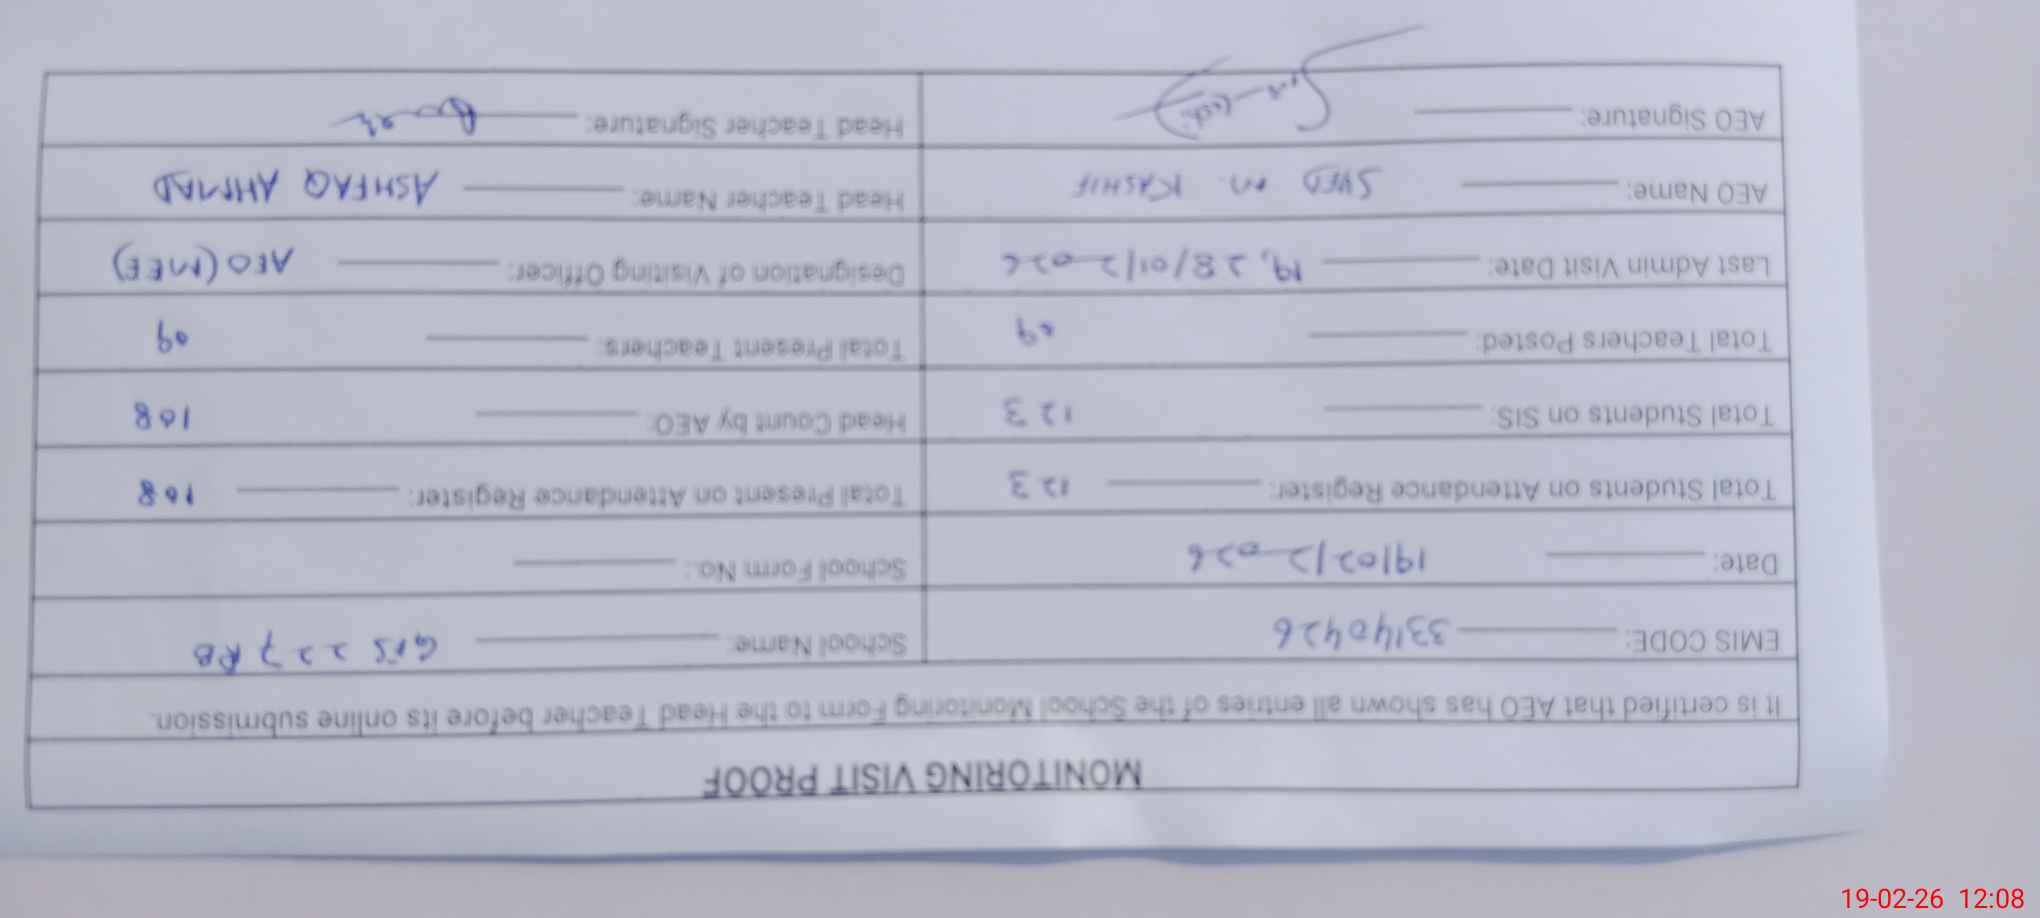 MONITORING VISIT PROOF
It is certified that AEO has shown all entries of the School Monitoring Form to the Head Teacher before its online submission.
EMIS CODE: 33140426 School Name: GPS 227 RB
Date: 19/02/2026 School Form No.:
Total Students on Attendance Register: 123 Total Present on Attendance Register: 108
Total Students on SIS: 123 Head Count by AEO: 108
Total Teachers Posted: 09 Total Present Teachers: 09
Last Admin Visit Date: 19, 28/01/2026 Designation of Visiting Officer: AEO (MEE)
AEO Name: SYED M. KASHIF Head Teacher Name: ASHFAQ AHMAD
AEO Signature: Head Teacher Signature:
19-02-26 12:08